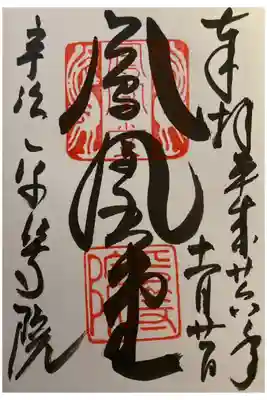 奉拝平成廿六年
十一月廿一日
鳳凰堂
宇治平等院